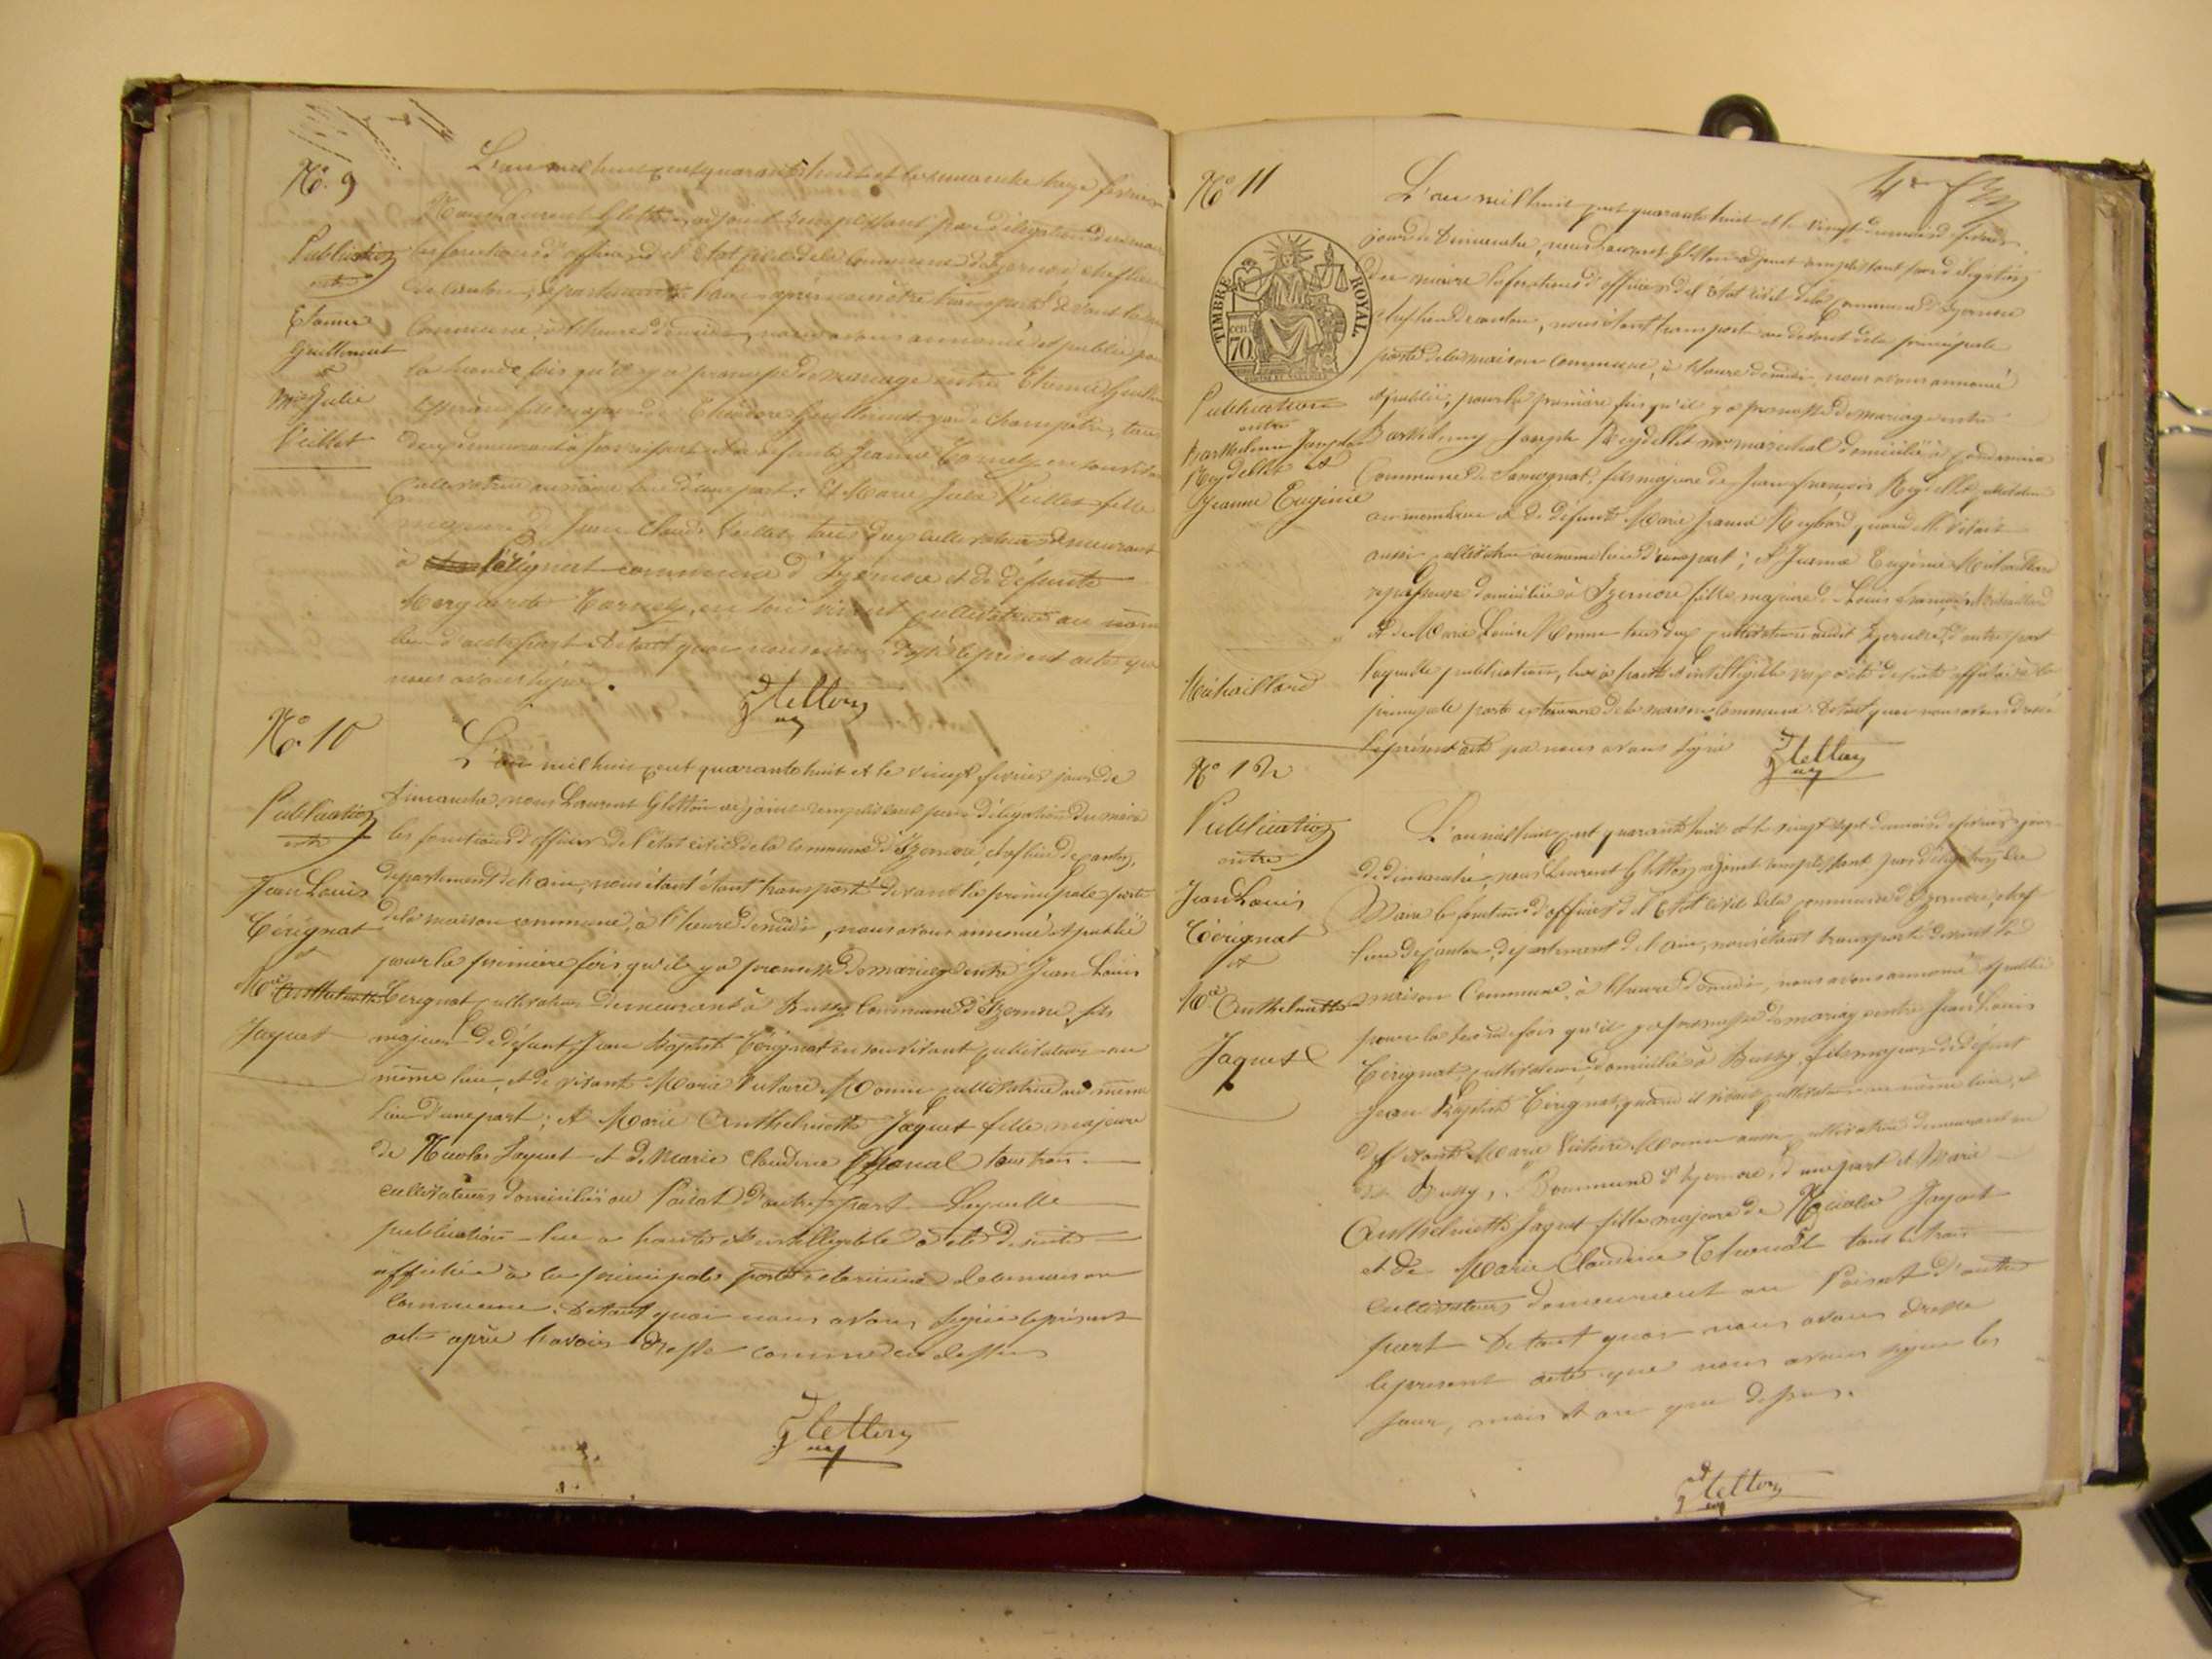 No. 9
Publication
entre
Etienne
Guillermet
et
Mie Julie
Veillet
L'an mil huit cent quarante huit et le dimanche treize février
Nous Laurent Gletton, adjoint remplissant par délégation du maire
les fonctions d'officier de l'Etat civil de la commune d'Izernore chef lieu
de canton, département de l'ain après nous être transporté devant la
Commune, à l'heure de midi, nous avons annoncé et publié pour
la fois qu'il y a promesse de mariage entre Etienne
fils majeur de Théodore Guillermet garde champêtre, tous
deux demeurant à et de défunte Jeanne en son vivant
cultivatrice au même lieu d'une part; Et Marie Julie Veillet fille
majeure de Jean Claude Veillet tous deux cultivateurs demeurant
à Térignat commune d'Izernore et de défunte
Marguerite en son vivant cultivatrice au même
lieu d'autre part. De tout quoi nous avons dressé le présent acte que
nous avons signé.
Gletton
No. 10
Publication
entre
Jean Louis
Térignat
et
Mie Anthelmette
Jaquet
L'an mil huit cent quarante huit et le vingt février jour de
Dimanche, nous Laurent Gletton adjoint remplissant par délégation du maire
les fonctions d'officier de l'état civil de la commune d'Izernore, chef lieu de canton,
département de l'ain, nous étant étant transporté devant la principale porte
de la maison commune, à l'heure de midi, nous avons annoncé et publié
pour la première fois qu'il y a promesse de mariage entre Jean Louis
Térignat cultivateur demeurant à Bussy Commune d'Izernore, fils
majeur de défunt Jean Baptiste Térignat en son vivant cultivateur au
même lieu, et de vivante Marie Victoire Monin cultivatrice au même
lieu d'une part; et Marie Anthelmette Jaquet fille majeure
de Nicolas Jaquet et de Marie Claudine Thonal tous trois
cultivateurs domiciliés au Poisat d'autre part Laquelle
publication lue à haute et intelligible a été de suite
affichée à la principale porte extérieure de la maison
Commune. De tout quoi nous avons signé le présent
acte après l'avoir dressé comme ci dessus
Gletton
No 11
TIMBRE ROYAL.
cen 70
Publication
entre
Barthelemy Joseph
Reydellet et
Jeanne Eugénie
Métraillard
L'an mil huit cent quarante huit et le vingt du mois de février
jour de Dimanche, nous Laurent Gletton adjoint remplissant par délégation
du maire les fonctions d'officier de l'état civil de la commune d'Izernore
chef lieu de canton, nous étant transporté au devant de la principale
porte de la maison commune, à l'heure de midi, nous avons annoncé
et publié, pour la première fois qu'il y a promesse de mariage entre
Barthelemy Joseph Reydellet maréchal domicilié à
Commune de Samognat, fils majeur de Jean françois Reydellet, cultivateur
au même lieu et de défunte Marie quand elle vivait
aussi cultivatrice au même lieu d'une part; et Jeanne Eugénie Métraillard
repasseuse domiciliée à Izernore fille majeure de Louis françois Métraillard
et de Marie Louise Monin tous deux cultivateurs audit Izernore, d'autre part
laquelle publication, lue à haute et intelligible voix a été de suite affichée à la
principale porte extérieure de la maison commune. De tout quoi nous avons dressé
le présent acte que nous avons signé
Gletton
No 12
Publication
entre
Jean Louis
Térignat
et
Mie Anthelmette
Jaquet
L'an mil huit cent quarante huit et le vingt sept du mois de février jour
de dimanche, nous Laurent Gletton adjoint remplissant par délégation du
Maire les fonctions d'officier de l'Etat civil de la commune d'Izernore, chef
lieu de canton, département de l'ain, nous étant transporté devant la
maison Commune, à l'heure de midi, nous avons annoncé et publié
pour la seconde fois qu'il y a promesse de mariage entre Jean Louis
Térignat, cultivateur, domicilié à Bussy, fils majeur de défunt
Jean Baptiste Térignat, quand il vivait cultivateur au même lieu, et
de vivante Marie Victoire Monin aussi cultivatrice demeurant au
dit Bussy, Commune d'Izernore, d'une part et Marie
Anthelmette Jaquet fille majeure de Nicolas Jaquet
et de Marie Claudine Thonal tous les trois
cultivateurs demeurant au Poisat d'autre
part De tout quoi nous avons dressé
le présent acte que nous avons signé les
jour, mois et an que dessus.
Gletton